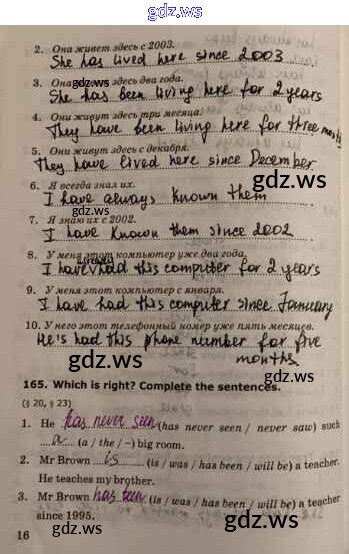 gdz.ws
2. Она живет здесь с 2003.
She has lived here since 2003
3. Она живет здесь два года.
She has been living here for 2 years
4. Они живут здесь три месяца.
They have been living here for three months
5. Они живут здесь с декабря.
They have lived here since December
gdz.ws
6. Я всегда знал их.
I have always known them
7. Я знаю их с 2002.
I have known them since 2002
8. У меня этот компьютер уже два года.
already
I have had this computer for 2 years
gdz.ws
9. У меня этот компьютер с января.
I have had this computer since January
10. У него этот телефонный номер уже пять месяцев.
He's had this phone number for five
months
gdz.ws
165. Which is right? Complete the sentences.
(§ 20, § 23)
1. He has never seen (has never seen / never saw) such
a (a / the / –) big room.
gdz.ws
2. Mr Brown is (is / was / has been / will be) a teacher.
He teaches my brother.
3. Mr Brown has been (is / was / has been / will be) a teacher
since 1995.
16
gdz.ws